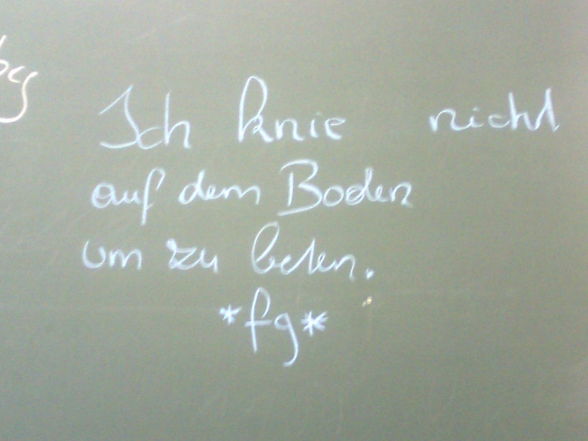 Ich knie nicht
auf dem Boden
um zu beten.
*fg*